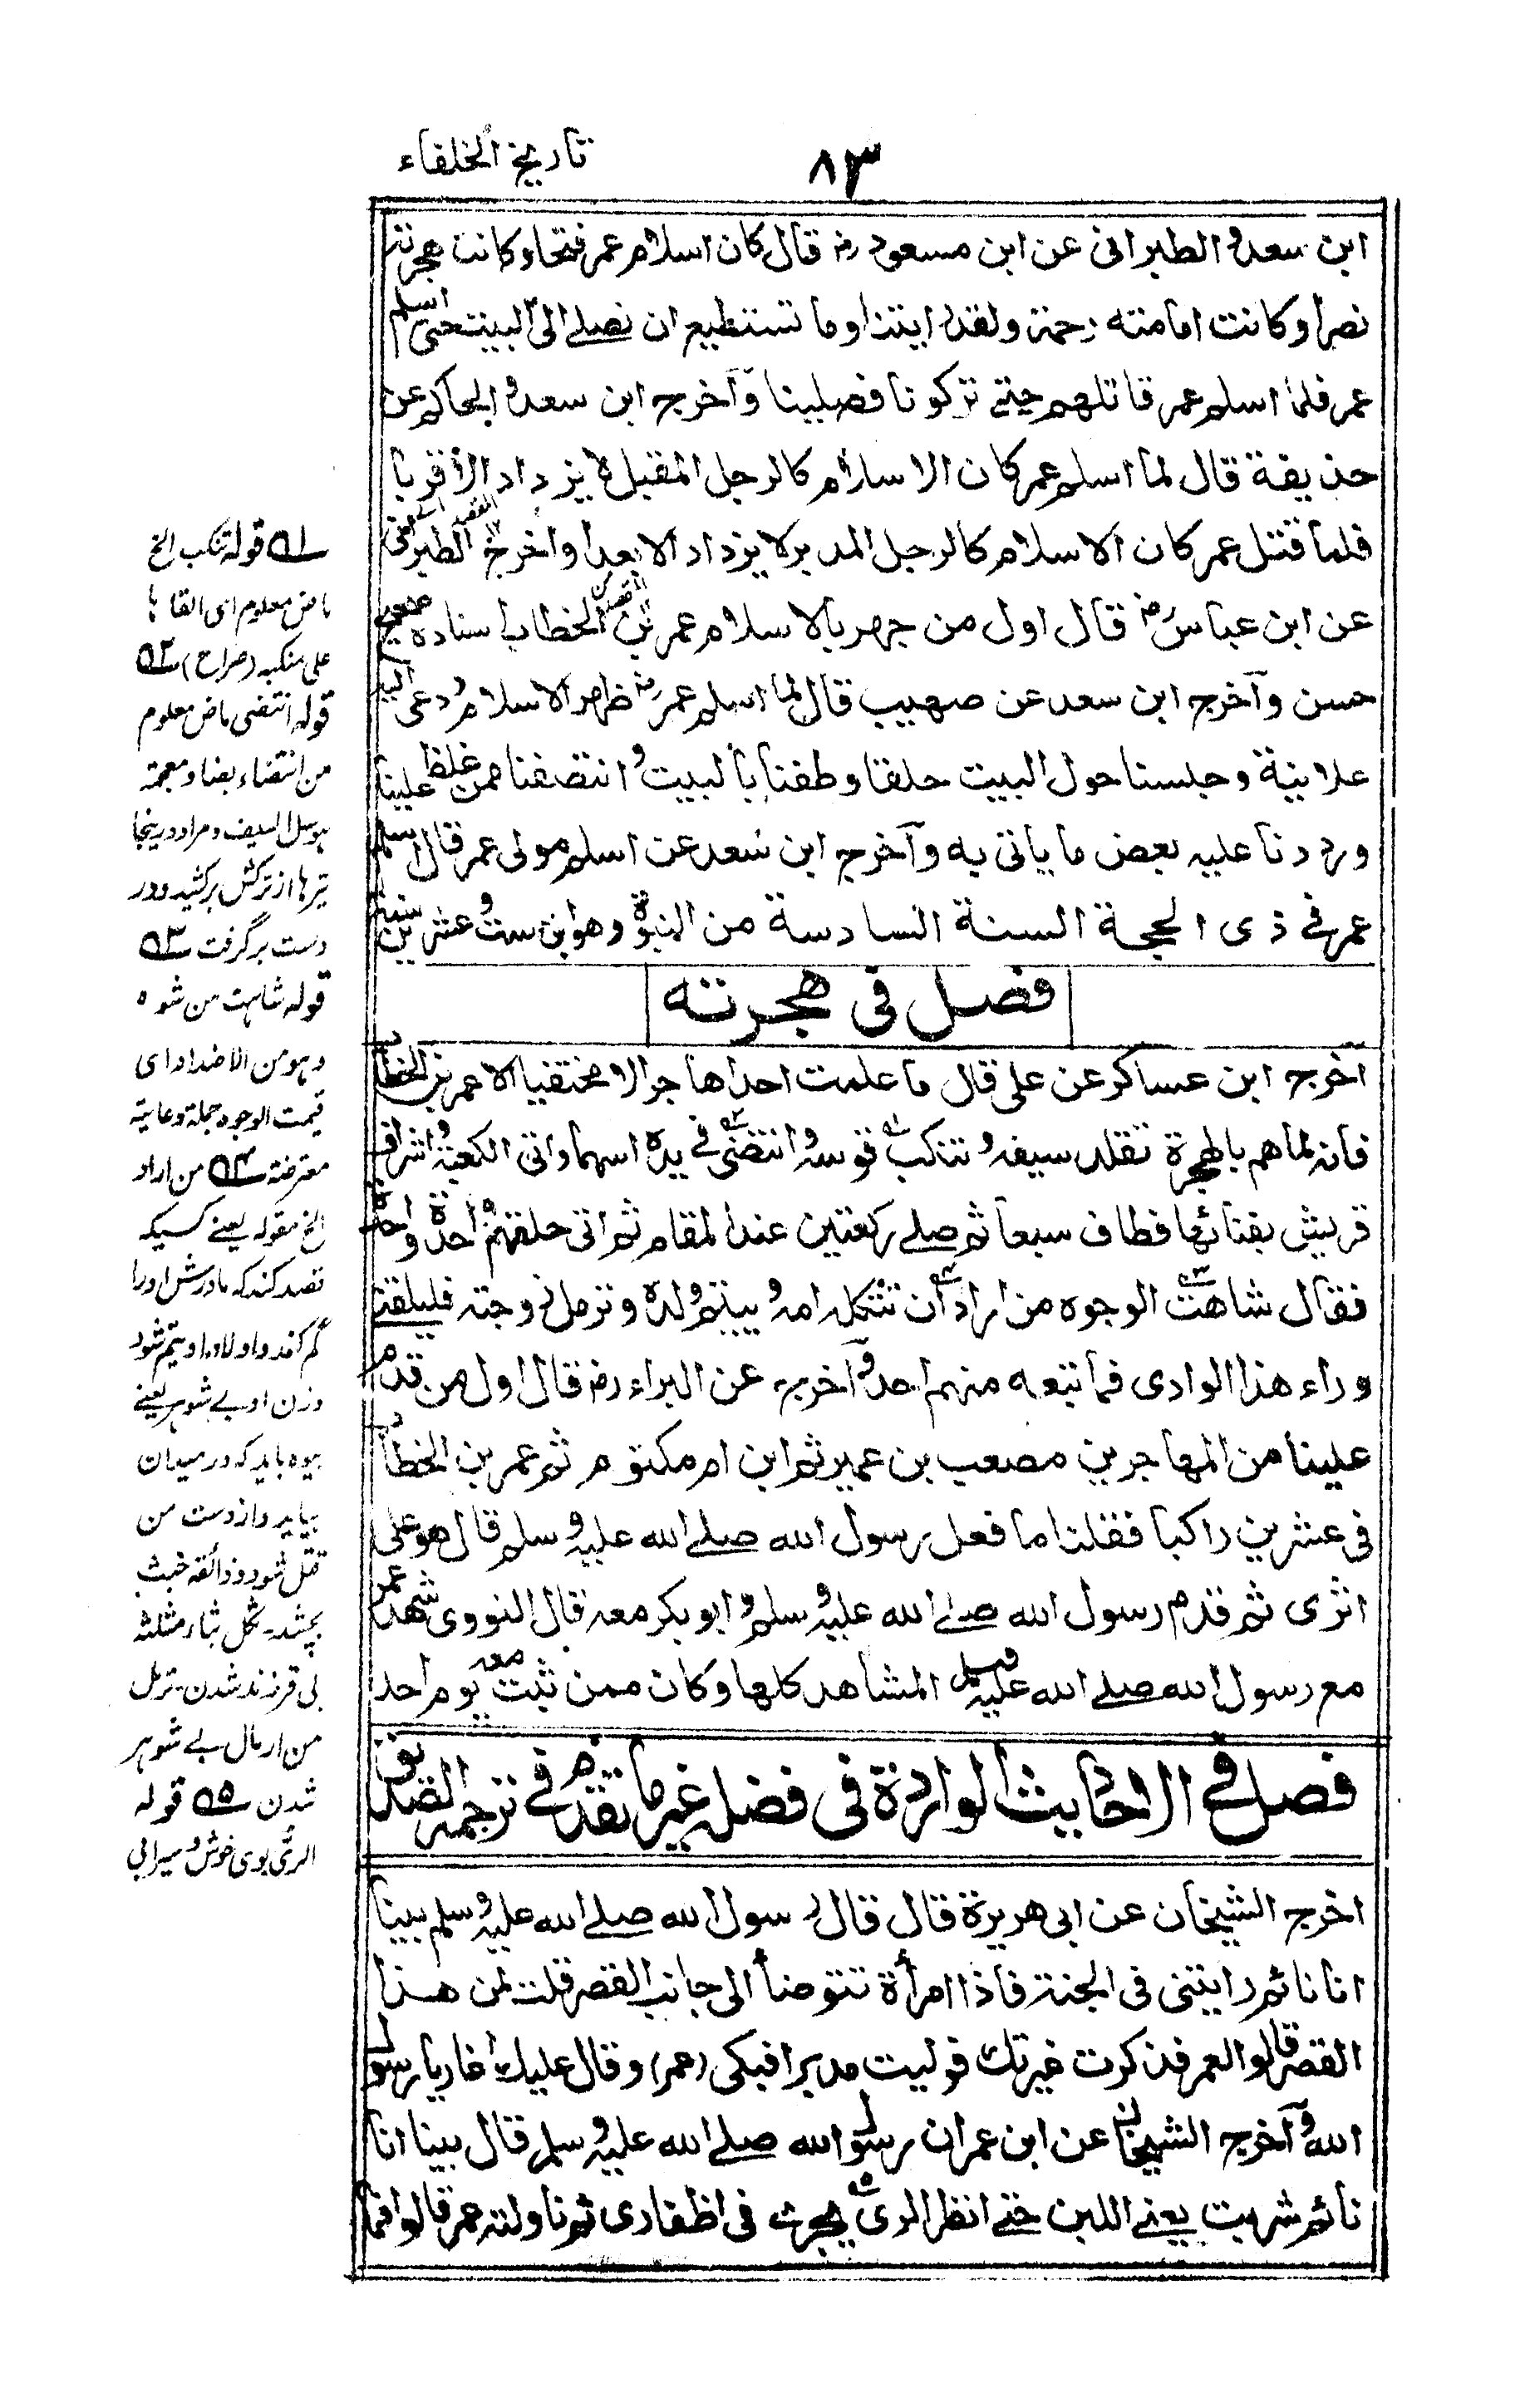 تاريخ الخلفاء
٨٣
ابن سعد و الطبرانی عن ابن مسعود رض قال كان اسلام عمر فتحا و كانت هجرته
نصرا و كانت امامته رحمة و لقد رأيتنا و ما نستطيع ان نصلے الی البيت حتى اسلم
عمر فلما اسلم عمر قاتلهم حتے تركونا فصلينا و آخرج ابن سعد و الحاكم عن
حذيفة قال لما اسلم عمر كان الاسلام كالرجل المقبل لا يزداد الا قربا
فلما قتل عمر كان الاسلام كالرجل المدبر لا يزداد الا بعدا و اخرج الطبرانی
عن ابن عباس رض قال اول من جهر بالاسلام عمر بن الخطاب اسناده صحيح
حسن و آخرج ابن سعد عن صهيب قال لما اسلم عمر رض ظهر الاسلام و دعی اليه
علانية و جلسنا حول البيت حلقا و طفنا بالبيت و انتصفنا ممن غلظ علينا
و رددنا عليه بعض ما ياتی به و آخرج ابن سعد عن اسلم مولی عمر قال اسلم
عمر فی ذی الحجة السنة السادسة من النبوة و هو ابن ست و عشرين سنة
فصل فی هجرته
آخرج ابن عساكر عن علی قال ما علمت احدا هاجر الا مختفيا الا عمر بن الخطاب
فانه لما هم بالهجرة تقلد سيفه و تنكب قوسه و انتضی فی يده اسهما و اتی الكعبة و اشراف
قريش بفنائها فطاف سبعا ثم صلے ركعتين عند المقام ثم اتی حلقهم واحدة واحدة
فقال شاهت الوجوه من اراد ان تثكله امه و ييتم ولده و ترمل زوجته فليلقنی
وراء هذا الوادی فما تبعه منهم احد و آخرج عن البراء رض قال اول من قدم
علينا من المهاجرين مصعب بن عمير ثم ابن ام مكتوم ثم عمر بن الخطاب
فی عشرين راكبا فقلنا ما فعل رسول الله صلے الله عليه و سلم قال هو علی
اثری ثم قدم رسول الله صلے الله عليه و سلم و ابو بكر معه قال النووی شهد عمر
مع رسول الله صلے الله عليه وسلم المشاهد كلها و كان ممن ثبت معه يوم احد
فصل فی الاحاديث الواردة فی فضله غير ما تقدم فی ترجمة الصديق
اخرج الشيخان عن ابی هريرة قال قال رسول الله صلے الله عليه و سلم بينا
انا نائم رايتنی فی الجنة فاذا امرأة تتوضأ الی جانب القصر قلت لمن هذا
القصر قالوا لعمر فذكرت غيرتك فوليت مدبرا فبكی (عمر) و قال عليك اغار يا رسول
الله و آخرج الشيخان عن ابن عمر ان رسول الله صلے الله عليه و سلم قال بينا انا
نائم شربت يعنے اللبن حتے انظر الری يجری فی اظفاری ثم ناولته عمر قالوا فما
١ قوله تنكب الخ
ماض معلوم ای القاها
علی منكبه (صراح) ٢
قوله انتضی ماض معلوم
من انتضاء بضاد معجمة
هو سل السيف و مراد درینجا
تیرها از ترکش برکشید و در
دست برگرفت ٣
قوله شاهت من شوه
و هو من الاضداد ای
قبحت الوجوه جملة دعائية
معترضة ٤ من اراد
الخ مقوله یعنے کسیکه
قصد کند که مادرش او را
گم کند و اولاد او یتیم شود
و زن او بے شوهر یعنے
بیوه باید که در میدان
بیاید و از دست من
قتل شود و ذائقه خبث
بچشد ۔ ثکل بثاء مثلثه
بی فرزند شدن ۔ ترمل
من ارمال بے شوهر
شدن ٥ قوله
الری بوی خوش و سیرابی